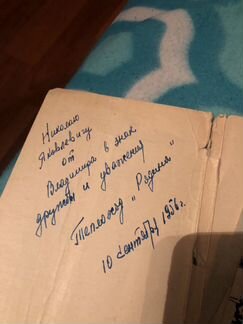 Николаю
Яковлевичу
от
Владимира в знак
дружбы и уважения
Теплоход „Родина"
10 сентября 1956г.